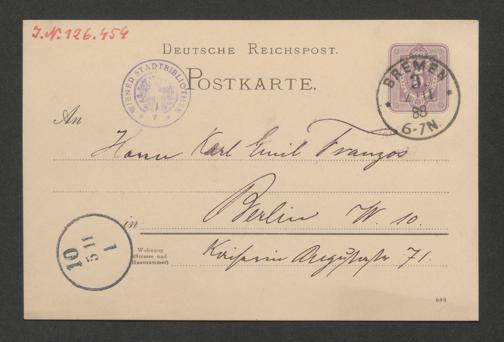 J.N. 126.454
DEUTSCHE REICHSPOST.
POSTKARTE.
WIENER STADTBIBLIOTHEK
BREMEN
88
6-7N.
An
Herrn Karl Emil Franzos
in Berlin W. 10.
Wohnung
(Strasse und
Hausnummer)
Kaiserin Augustastr 71.
1
5 11
10